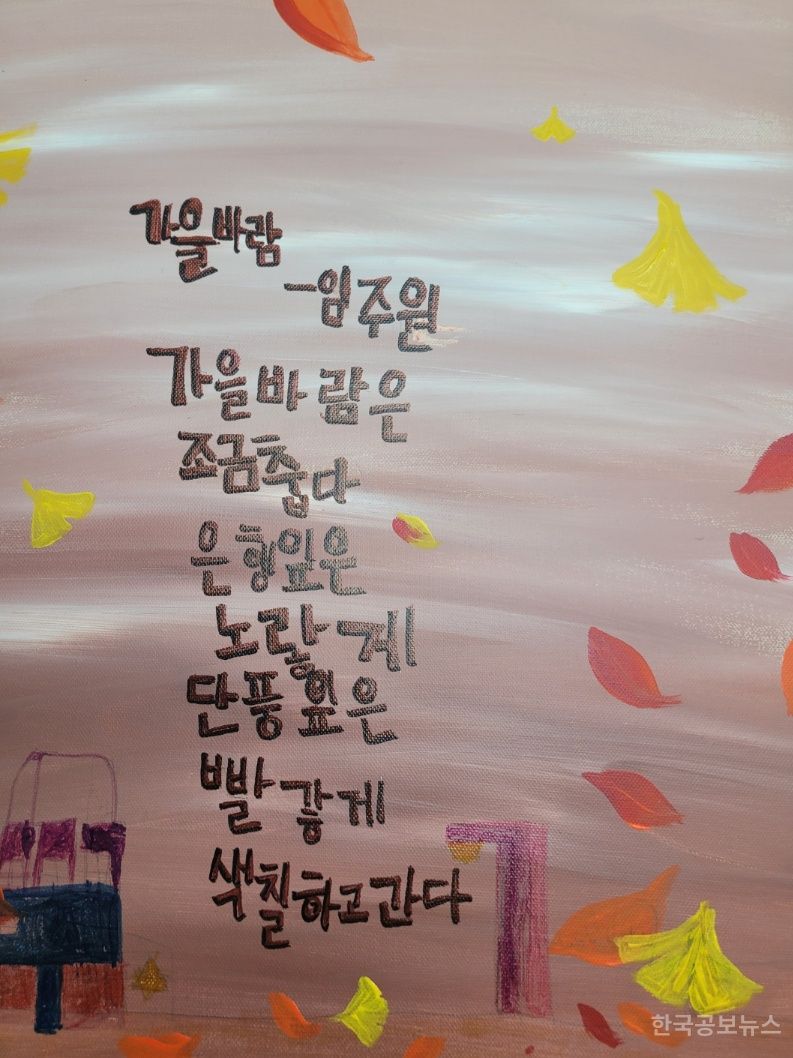 가을바람
-임주원
가을바람은
조금춥다
은행잎은
노랗게
단풍잎은
빨갛게
색칠하고간다
한국공보뉴스